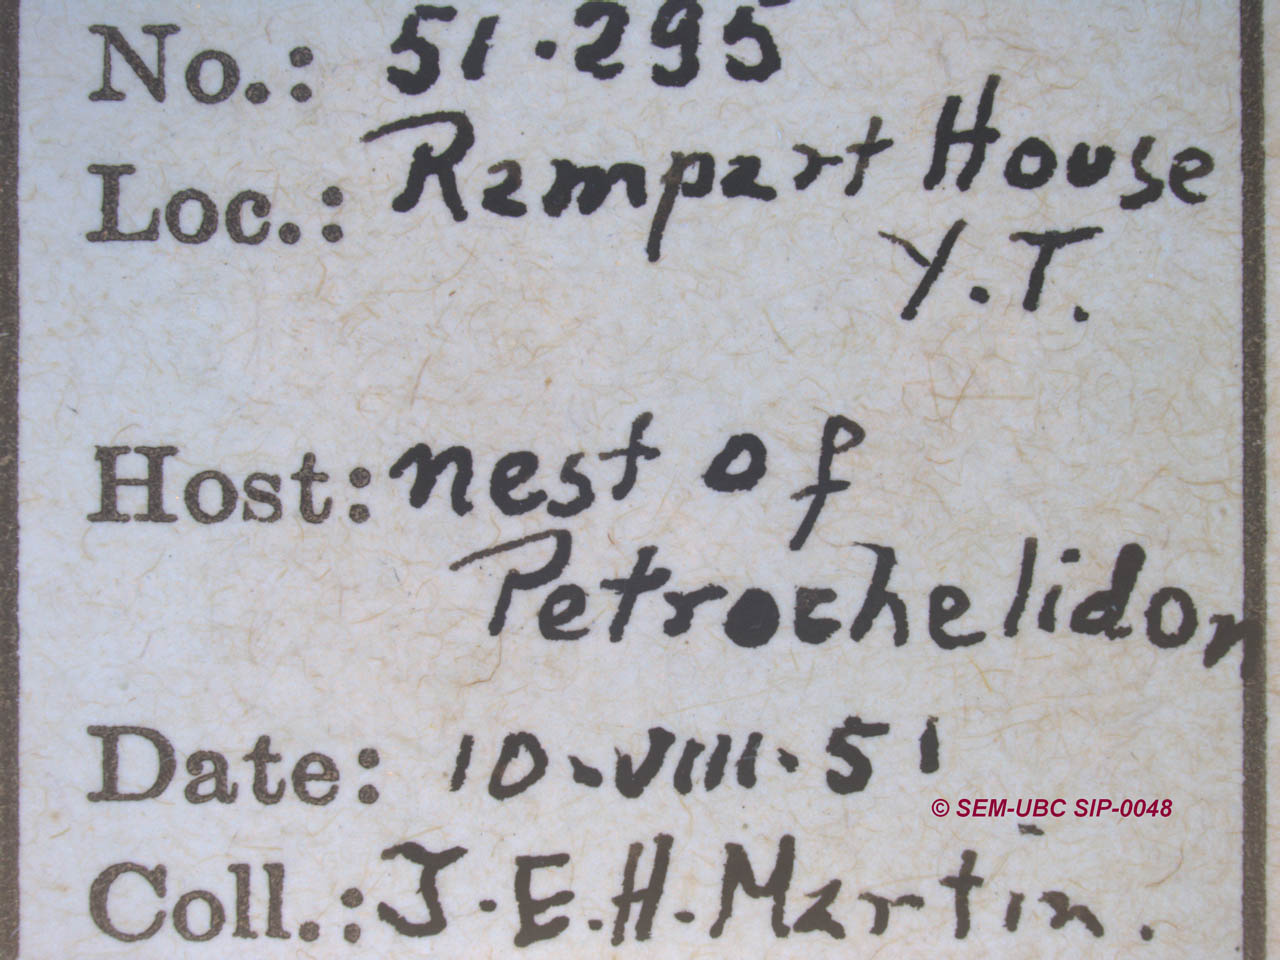 No.: 51.295
Loc.: Rampart House
Y.T.
Host: nest of
Petrochelidon
Date: 10-VIII.51
© SEM-UBC SIP-0048
Coll.: J.E.H.Martin.